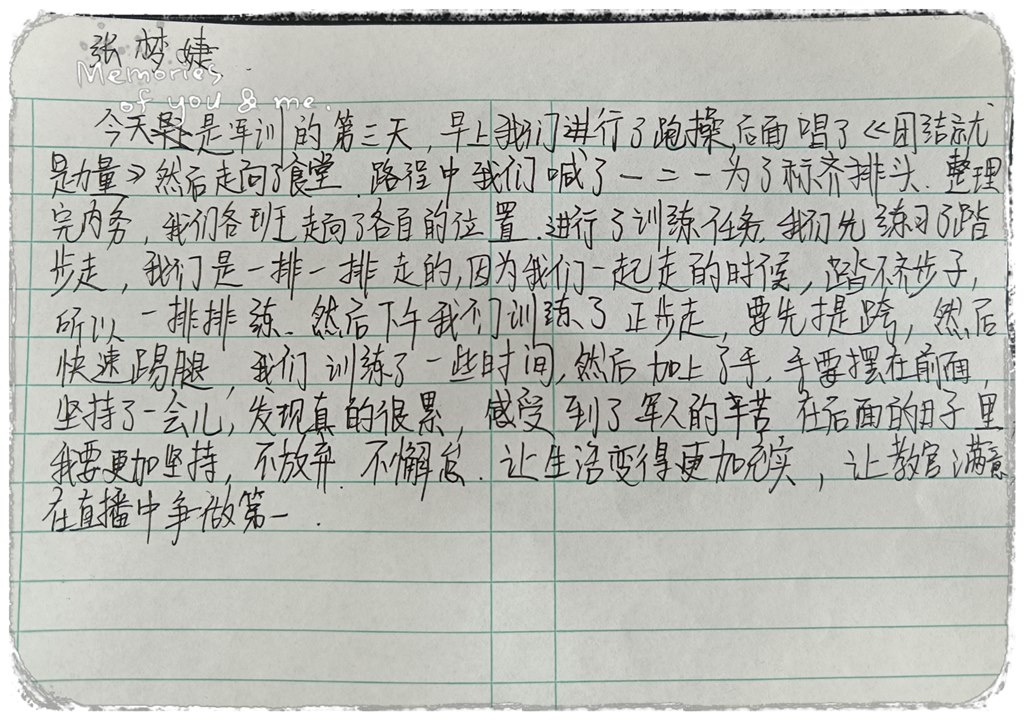 张梦婕
Memories
of you & me.
今天是军训的第三天,早上我们进行了跑操,后面唱了《团结就
是力量》然后走向了食堂.路程中我们喊了一二一为了标齐排头.整理
完内务,我们各班走向了各自的位置.进行了训练任务.我们先练习了踏
步走,我们是一排一排走的,因为我们一起走的时候,踏不齐步子,
所以一排排练.然后下午我们训练了正步走,要先提跨,然后
快速踢腿,我们训练了一些时间,然后加上了手.手要摆在前面,
坚持了一会儿,发现真的很累,感受到了军人的辛苦.在后面的日子里
我要更加坚持,不放弃.不懈怠.让生活变得更加充实,让教官满意
在直播中争做第一.